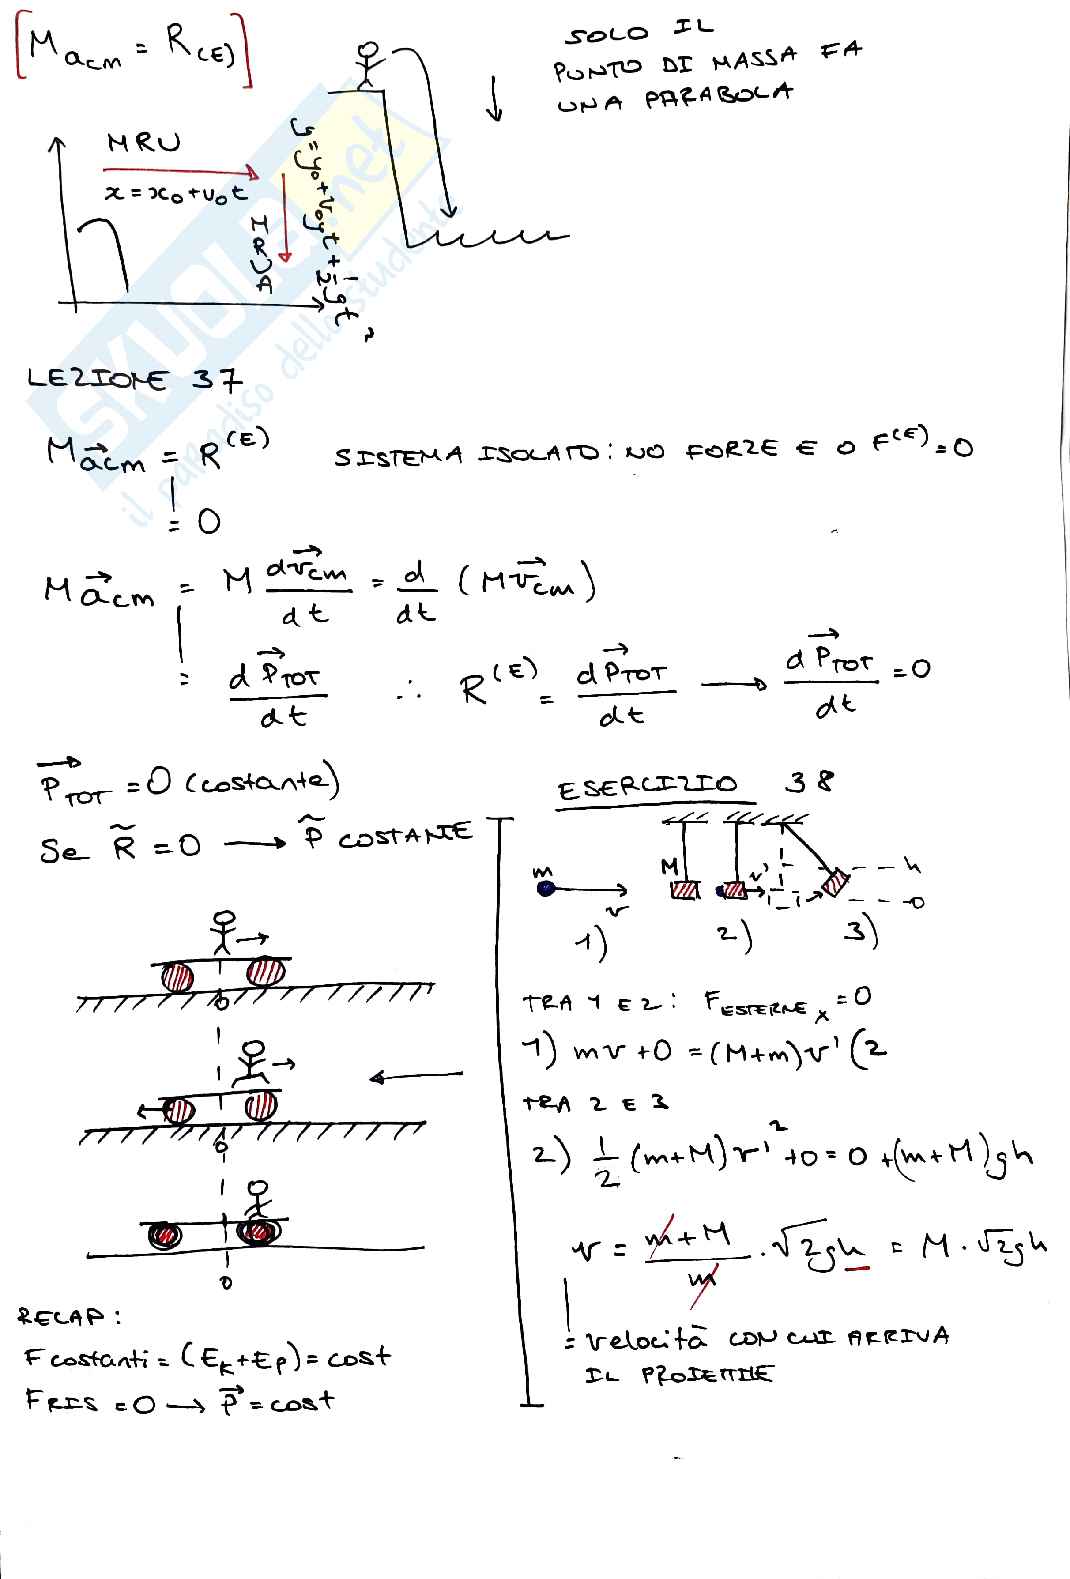 [M a_cm = R_(E)]
SOLO IL
PUNTO DI MASSA FA
UNA PARABOLA
MRU
x = x₀ + v₀t
MRUA
y = y₀ + v₀yt + ½gt²
SKUOLA.net
il paradiso dello studente
LEZIONE 37
M a⃗_cm = R^(E)
= 0
SISTEMA ISOLATO: NO FORZE E O F^(E) = 0
M a⃗_cm = M dv⃗_cm/dt = d/dt (M v⃗_cm)
= dP⃗_TOT/dt ∴ R^(E) = dP⃗_TOT/dt → dP⃗_TOT/dt = 0
P⃗_TOT = 0 (costante)
Se R̃ = 0 → P̃ COSTANTE
0
0
0
RECAP:
F costanti = (E_K + E_P) = cost
F RIS = 0 → P⃗ = cost
ESERCIZIO 38
m
v
M
v'
h
0
1)
2)
3)
TRA 1 E 2: F_ESTERNE x = 0
1) mv + 0 = (M+m)v' (2
TRA 2 E 3
2) ½ (m+M)v'² + 0 = 0 + (m+M)gh
v = (m+M)/m · √2gh = M · √2gh
= velocità CON CUI ARRIVA
IL PROIETTILE